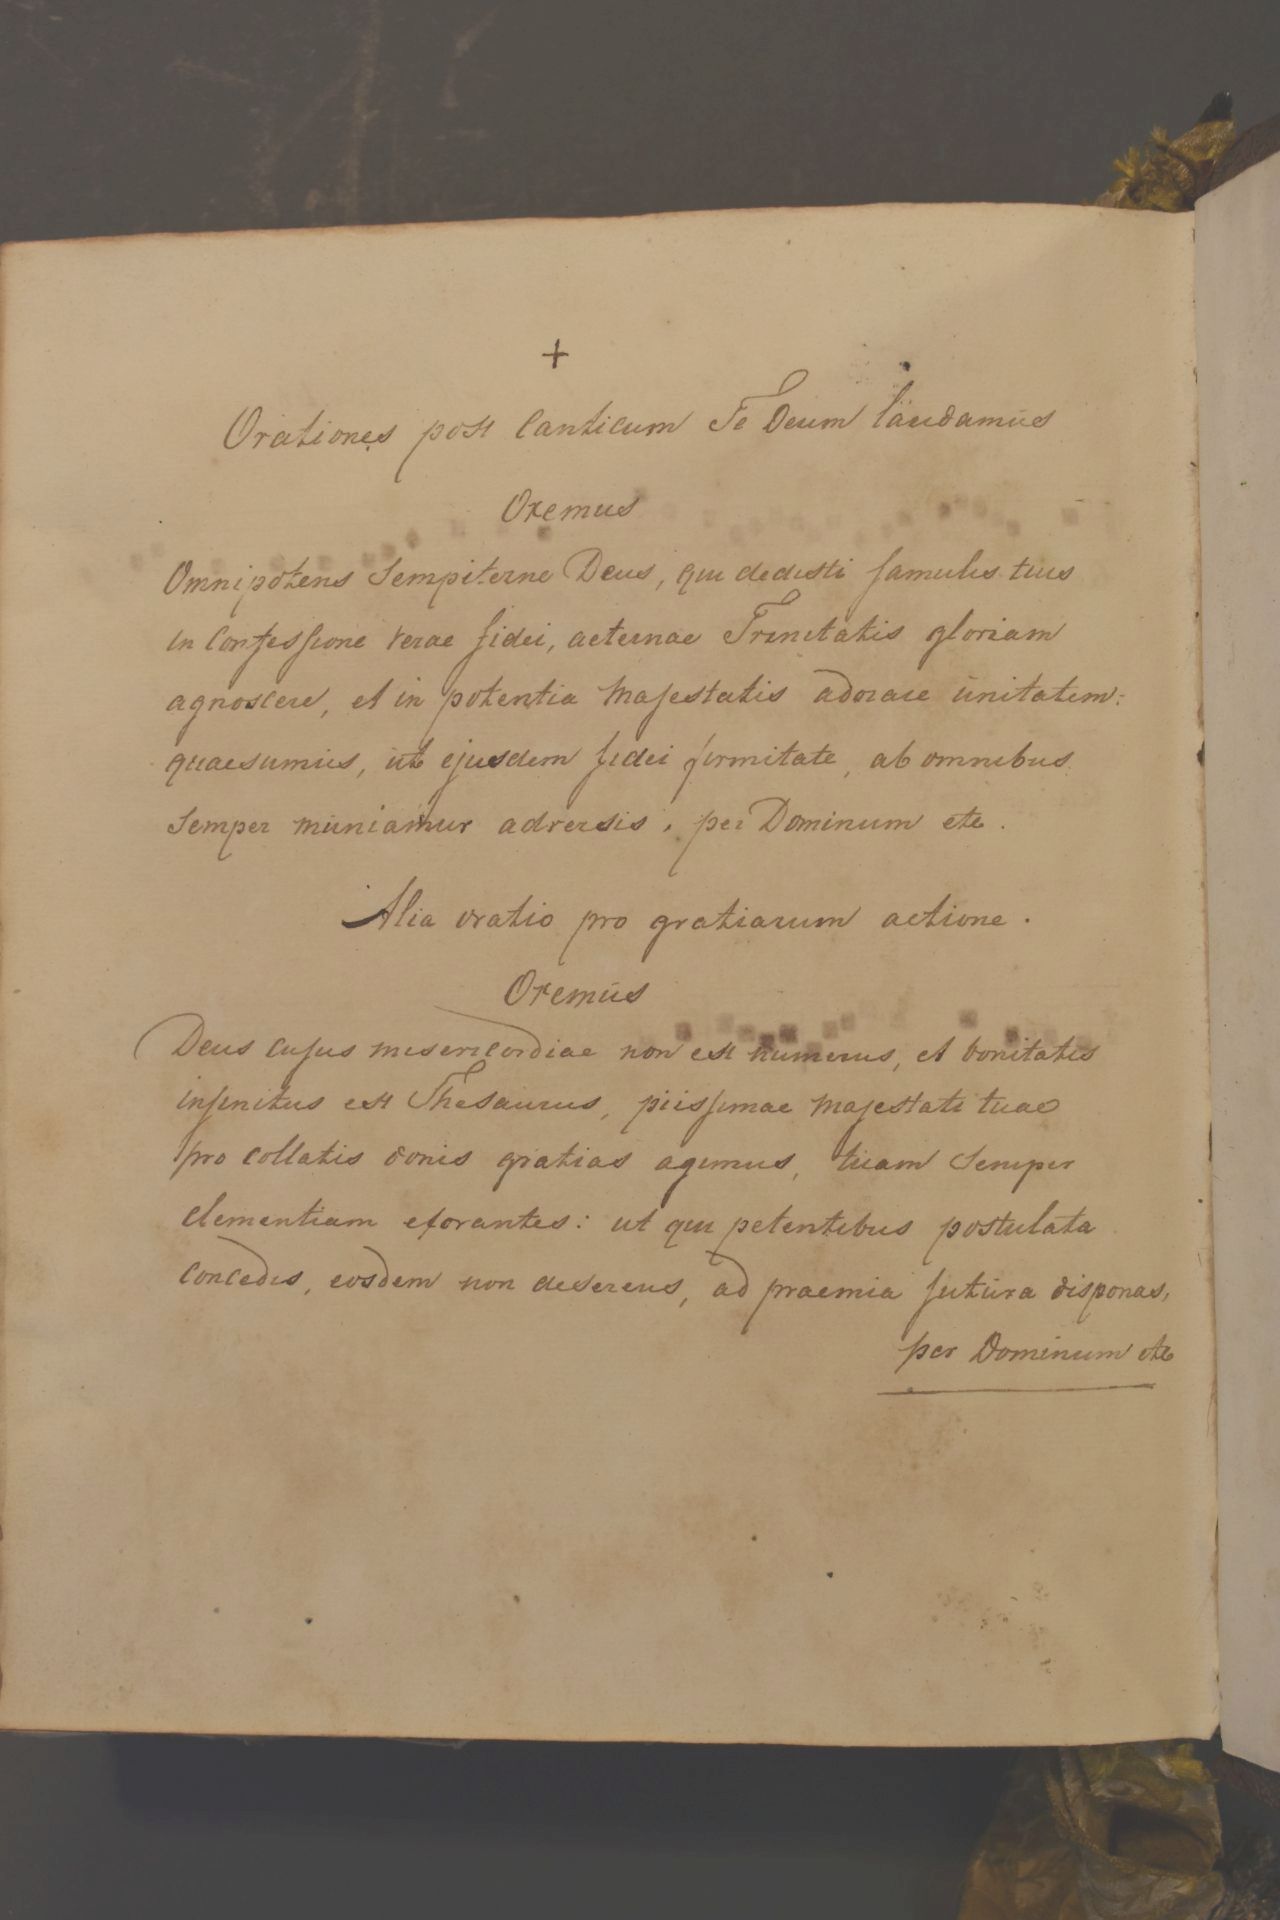 +
Orationes post Canticum Te Deum laudamus
Oremus
Omnipotens Sempiterne Deus, qui dedisti famulis tuis
in Confessione verae fidei, aeternae Trinitatis gloriam
agnoscere, et in potentia Majestatis adorare unitatem:
quaesumus, ut ejusdem fidei firmitate, ab omnibus
Semper muniamur adversis, per Dominum etc.
Alia oratio pro gratiarum actione.
Oremus
Deus cujus misericordiae non est numerus, et bonitatis
infinitus est Thesaurus, piissimae Majestati tuae
pro collatis donis gratias agimus, tuam Semper
clementiam exorantes: ut qui petentibus postulata
concedis, eosdem non desereus, ad praemia futura disponas,
per Dominum etc